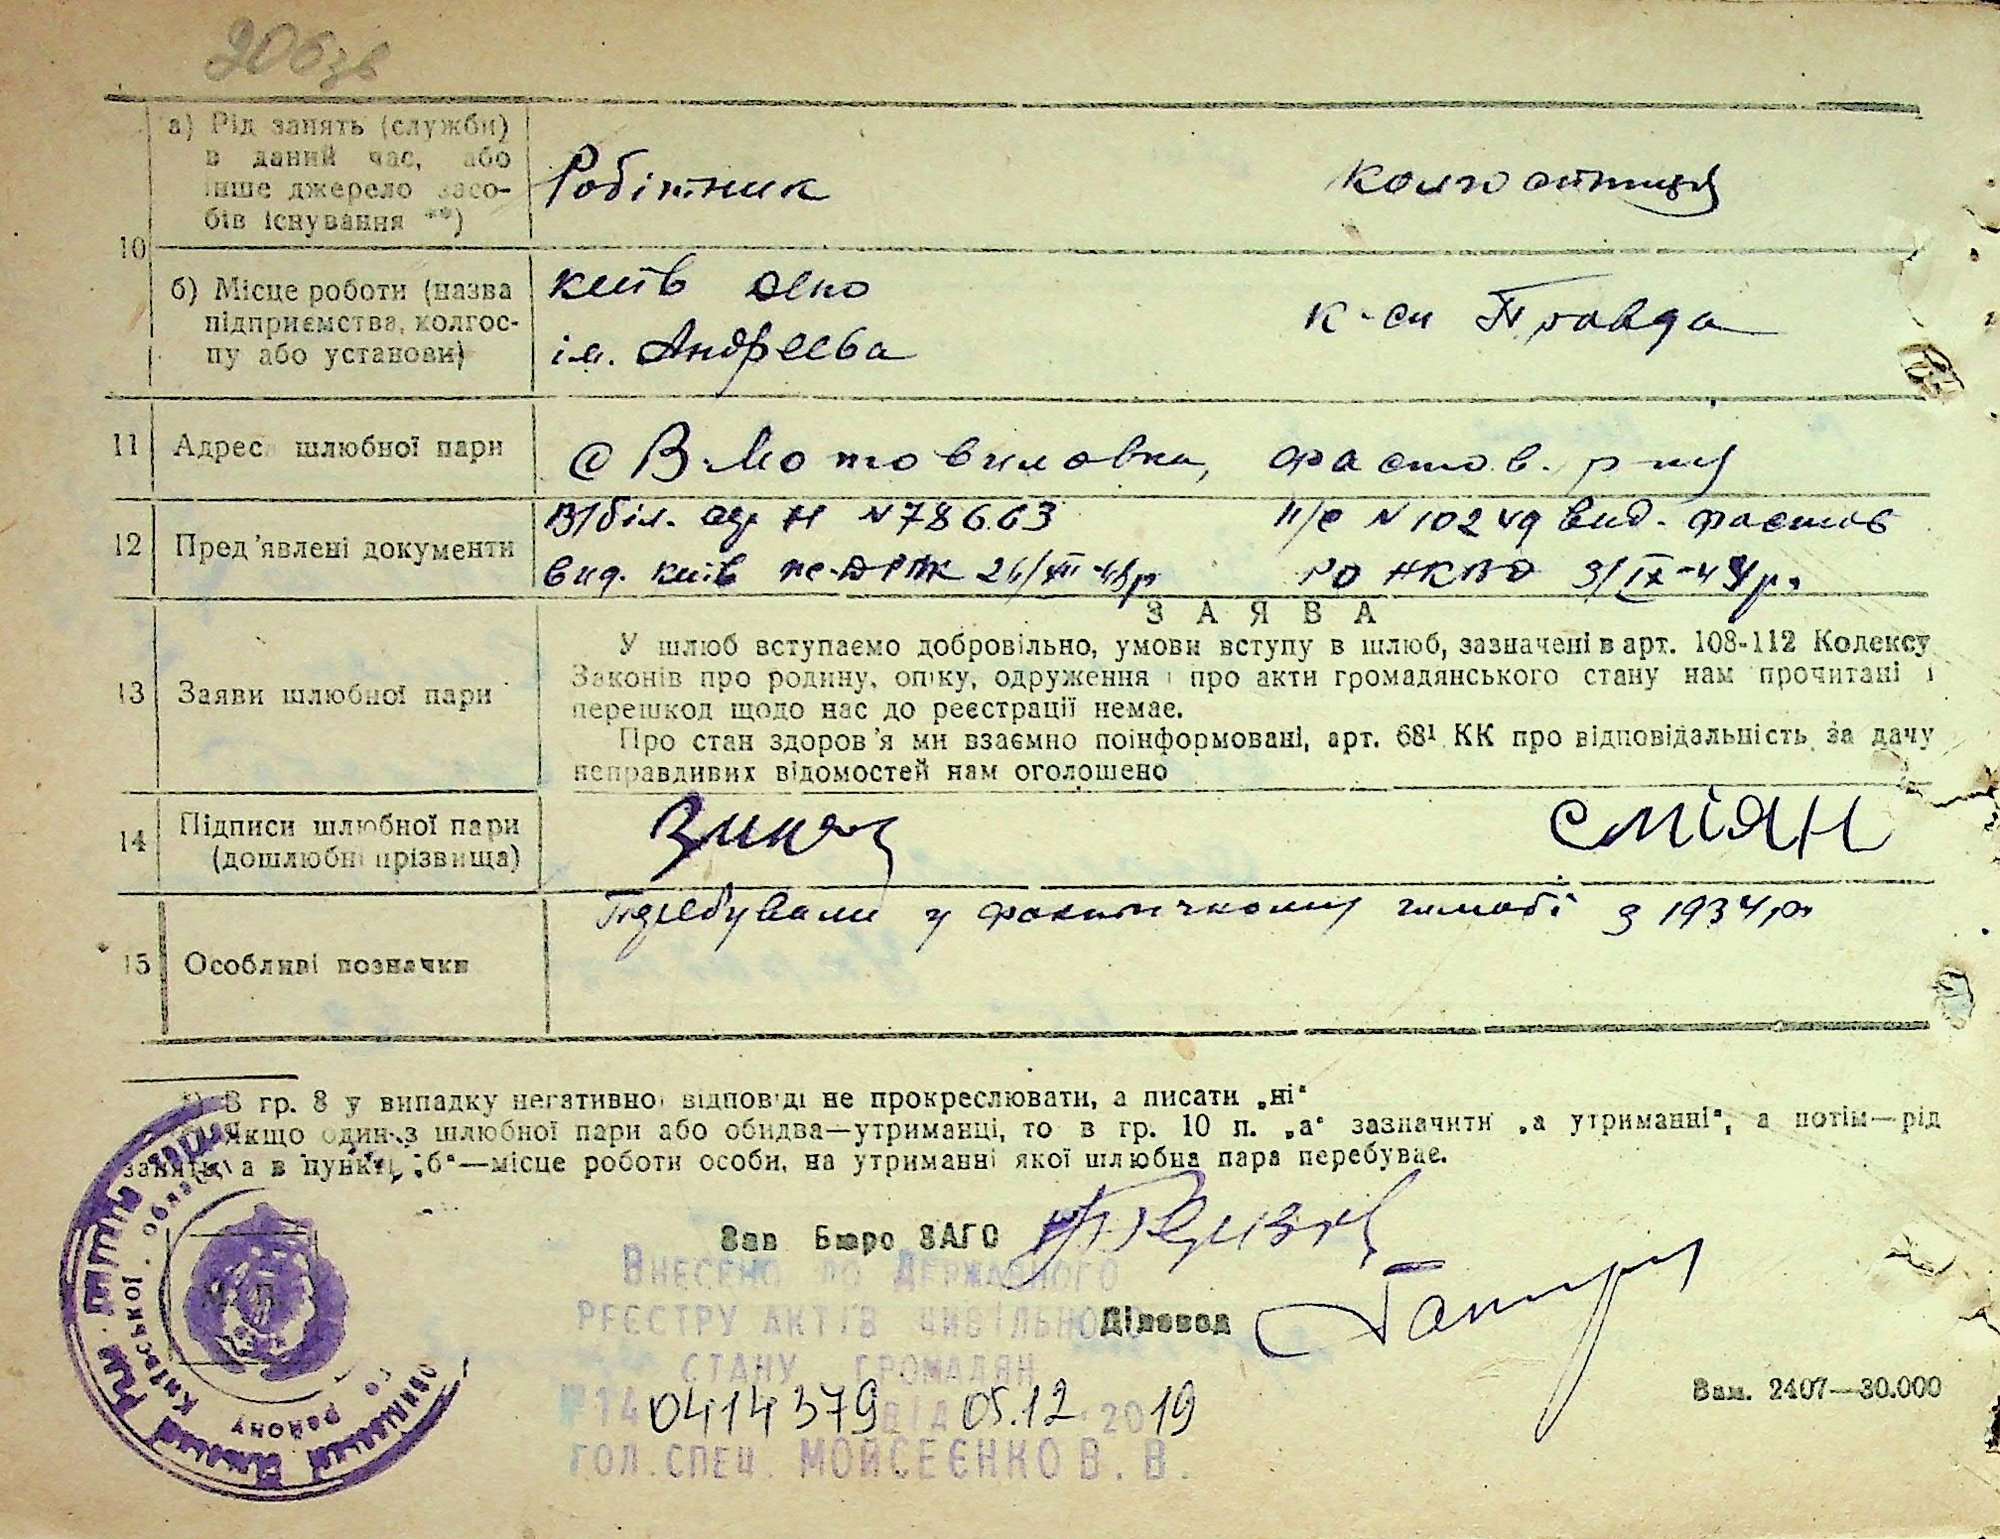 20 бзв
а) Рід занять (служби)
в даний час, або
інше джерело засо-
бів існування **)
Робітник
колгоспниця
10
б) Місце роботи (назва
підприємства, колгос-
пу або установи)
Київ депо
ім. Андреєва
к-сп Правда
11 Адреса шлюбної пари
с В-Мотовиловка, Фастов. р-ну
12 Пред'явлені документи
В/біл. N 78663
п/с N 10249 вид. Фастов
вид. Київ 26/XII-43р
РО НКВД 3/IX-44р.
ЗАЯВА
13 Заяви шлюбної пари
У шлюб вступаємо добровільно, умови вступу в шлюб, зазначені в арт. 108-112 Кодексу
Законів про родину, опіку, одруження і про акти громадянського стану нам прочитані і
перешкод щодо нас до реєстрації немає.
Про стан здоров'я ми взаємно поінформовані, арт. 68¹ КК про відповідальність за дачу
неправдивих відомостей нам оголошено
14 Підписи шлюбної пари
(дошлюбні прізвища)
Сміян
Перебували у фактичному шлюбі з 1934р.
15 Особливі позначки
*) В гр. 8 у випадку негативної відповіді не прокреслювати, а писати „ні“
Якщо один з шлюбної пари або обидва—утриманці, то в гр. 10 п. „а“ зазначити „а утриманні“, а потім—рід
занять, а в пункті „б“—місце роботи особи, на утриманні якої шлюбна пара перебуває.
Зав Бюро ЗАГС
Внесено до Державного
реєстру актів цивільного
Діловод
стану громадян
№ 14 0414379 від 05.12.2019
гол. спец. Мойсеєнко В. В.
Зам. 2407—30.000
Київської області
району